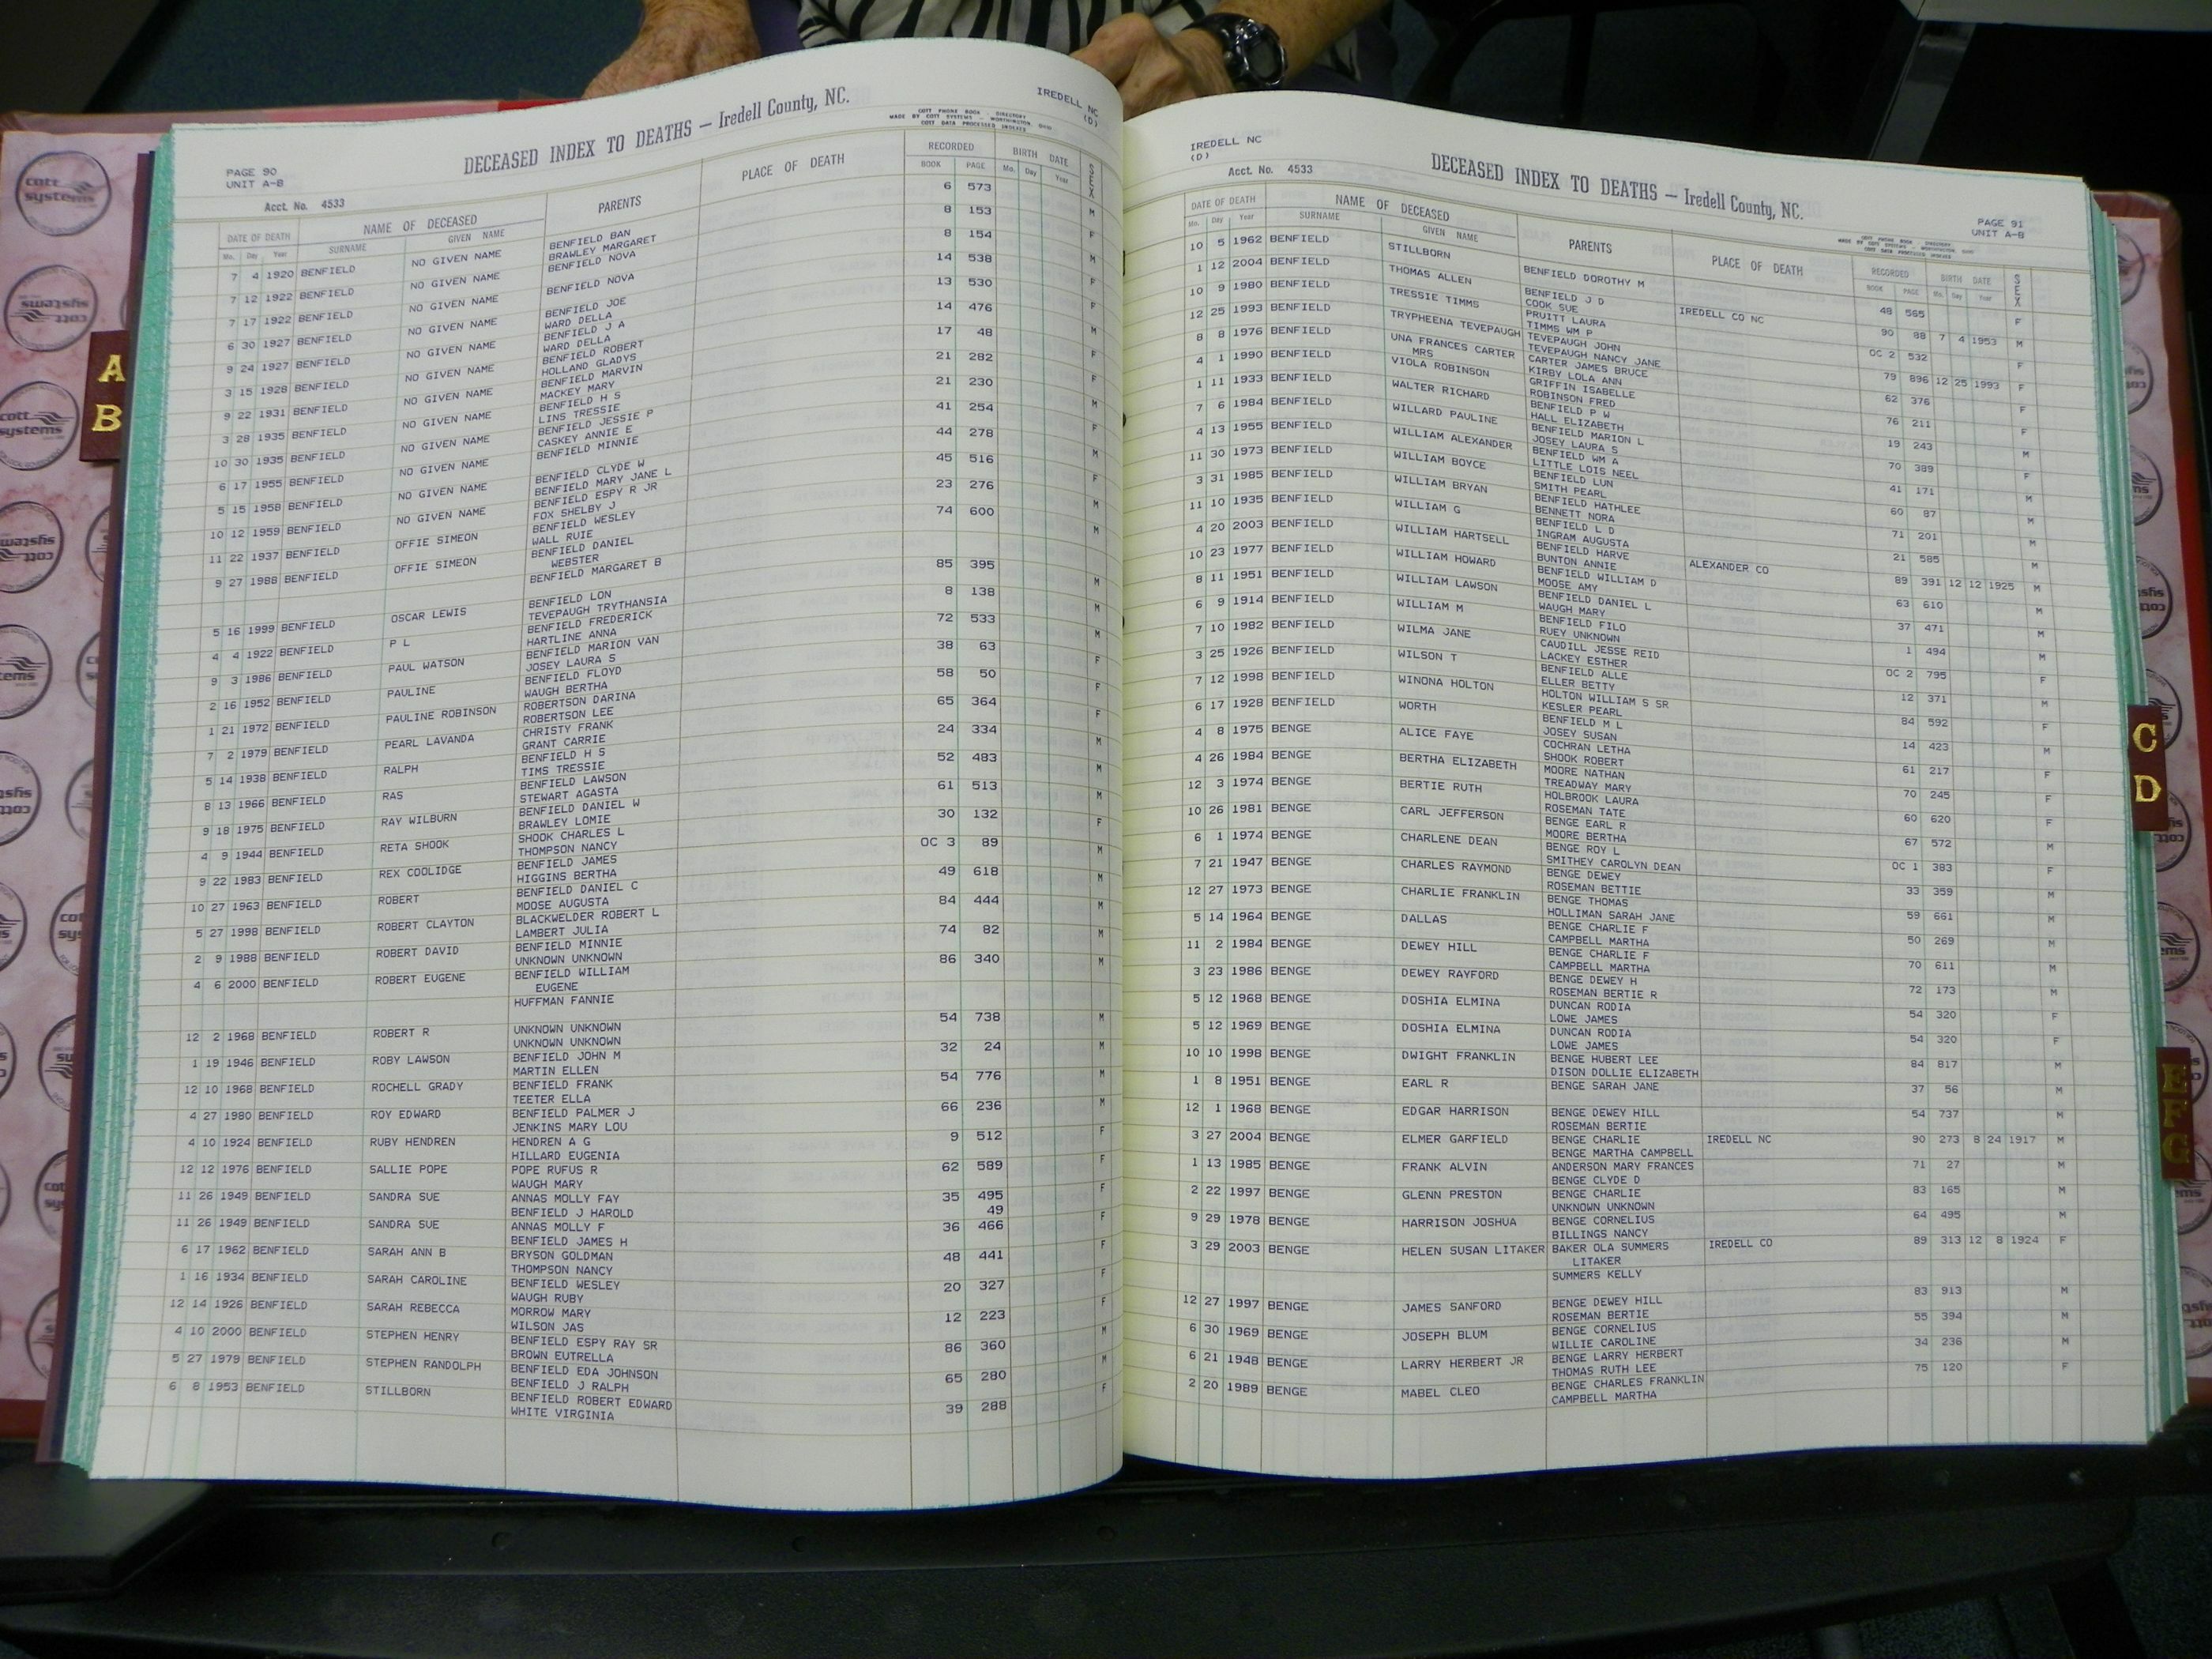 DECEASED INDEX TO DEATHS — Iredell County, NC.
IREDELL NC
(D)
PAGE 90
UNIT A-B
Acct. No. 4533
DATE OF DEATH NAME OF DECEASED PARENTS PLACE OF DEATH RECORDED BIRTH DATE SEX
Mo. Day Year SURNAME GIVEN NAME BOOK PAGE Mo. Day Year
7 4 1920 BENFIELD NO GIVEN NAME BENFIELD BAN 6 573 M
BRAWLEY MARGARET
7 12 1922 BENFIELD NO GIVEN NAME BENFIELD NOVA 8 153 F
7 17 1922 BENFIELD NO GIVEN NAME BENFIELD NOVA 8 154 M
6 30 1927 BENFIELD NO GIVEN NAME BENFIELD JOE 14 538 F
WARD DELLA
9 24 1927 BENFIELD NO GIVEN NAME BENFIELD J A 13 530 F
WARD DELLA
3 15 1928 BENFIELD NO GIVEN NAME BENFIELD ROBERT 14 476 M
HOLLAND GLADYS
9 22 1931 BENFIELD NO GIVEN NAME BENFIELD MARVIN 17 48 F
MACKEY MARY
3 28 1935 BENFIELD NO GIVEN NAME BENFIELD H S 21 282 F
LINS TRESSIE
10 30 1935 BENFIELD NO GIVEN NAME BENFIELD JESSIE P 21 230 M
CASKEY ANNIE E
6 17 1955 BENFIELD NO GIVEN NAME BENFIELD MINNIE 41 254 F
5 15 1958 BENFIELD NO GIVEN NAME BENFIELD CLYDE W 44 278 M
BENFIELD MARY JANE L
10 12 1959 BENFIELD NO GIVEN NAME BENFIELD ESPY R JR 45 516 F
FOX SHELBY J
11 22 1937 BENFIELD OFFIE SIMEON BENFIELD WESLEY 23 276 M
WALL RUIE
9 27 1988 BENFIELD OFFIE SIMEON BENFIELD DANIEL 74 600 M
WEBSTER
BENFIELD MARGARET B
5 16 1999 BENFIELD OSCAR LEWIS BENFIELD LON 85 395 M
TEVEPAUGH TRYTHANSIA
4 4 1922 BENFIELD P L BENFIELD FREDERICK 8 138 M
HARTLINE ANNA
9 3 1986 BENFIELD PAUL WATSON BENFIELD MARION VAN 72 533 M
JOSEY LAURA S
2 16 1952 BENFIELD PAULINE BENFIELD FLOYD 38 63 F
WAUGH BERTHA
1 21 1972 BENFIELD PAULINE ROBINSON ROBERTSON DARINA 58 50 F
ROBERTSON LEE
7 2 1979 BENFIELD PEARL LAVANDA CHRISTY FRANK 65 364 F
GRANT CARRIE
5 14 1938 BENFIELD RALPH BENFIELD H S 24 334 M
TIMS TRESSIE
8 13 1966 BENFIELD RAS BENFIELD LAWSON 52 483 M
STEWART AGASTA
9 18 1975 BENFIELD RAY WILBURN BENFIELD DANIEL W 61 513 M
BRAWLEY LOMIE
4 9 1944 BENFIELD RETA SHOOK SHOOK CHARLES L 30 132 F
THOMPSON NANCY
9 22 1983 BENFIELD REX COOLIDGE BENFIELD JAMES OC 3 89 M
HIGGINS BERTHA
10 27 1963 BENFIELD ROBERT BENFIELD DANIEL C 49 618 M
MOOSE AUGUSTA
5 27 1998 BENFIELD ROBERT CLAYTON BLACKWELDER ROBERT L 84 444 M
LAMBERT JULIA
2 9 1988 BENFIELD ROBERT DAVID BENFIELD MINNIE 74 82 M
UNKNOWN UNKNOWN
4 6 2000 BENFIELD ROBERT EUGENE BENFIELD WILLIAM 86 340 M
EUGENE
HUFFMAN FANNIE
12 2 1968 BENFIELD ROBERT R UNKNOWN UNKNOWN 54 738 M
UNKNOWN UNKNOWN
1 19 1946 BENFIELD ROBY LAWSON BENFIELD JOHN M 32 24 M
MARTIN ELLEN
12 10 1968 BENFIELD ROCHELL GRADY BENFIELD FRANK 54 776 M
TEETER ELLA
4 27 1980 BENFIELD ROY EDWARD BENFIELD PALMER J 66 236 M
JENKINS MARY LOU
4 10 1924 BENFIELD RUBY HENDREN HENDREN A G 9 512 F
HILLARD EUGENIA
12 12 1976 BENFIELD SALLIE POPE POPE RUFUS R 62 589 F
WAUGH MARY
11 26 1949 BENFIELD SANDRA SUE ANNAS MOLLY FAY 35 495 F
BENFIELD J HAROLD 49
11 26 1949 BENFIELD SANDRA SUE ANNAS MOLLY F 36 466 F
BENFIELD JAMES H
6 17 1962 BENFIELD SARAH ANN B BRYSON GOLDMAN 48 441 F
THOMPSON NANCY
1 16 1934 BENFIELD SARAH CAROLINE BENFIELD WESLEY 20 327 F
WAUGH RUBY
12 14 1926 BENFIELD SARAH REBECCA MORROW MARY 12 223 F
WILSON JAS
4 10 2000 BENFIELD STEPHEN HENRY BENFIELD ESPY RAY SR 86 360 M
BROWN EUTRELLA
5 27 1979 BENFIELD STEPHEN RANDOLPH BENFIELD EDA JOHNSON 65 280 M
BENFIELD J RALPH
6 8 1953 BENFIELD STILLBORN BENFIELD ROBERT EDWARD 39 288 F
WHITE VIRGINIA
IREDELL NC
(D)
DECEASED INDEX TO DEATHS — Iredell County, NC.
Acct. No. 4533
PAGE 91
UNIT A-B
DATE OF DEATH NAME OF DECEASED PARENTS PLACE OF DEATH RECORDED BIRTH DATE SEX
Mo. Day Year SURNAME GIVEN NAME BOOK PAGE Mo. Day Year
10 5 1962 BENFIELD STILLBORN BENFIELD DOROTHY M IREDELL CO NC 48 565 F
1 12 2004 BENFIELD THOMAS ALLEN BENFIELD J D 90 88 7 4 1953 M
COOK SUE
10 9 1980 BENFIELD TRESSIE TIMMS PRUITT LAURA OC 2 532 F
TIMMS WM P
12 25 1993 BENFIELD TRYPHEENA TEVEPAUGH TEVEPAUGH JOHN 79 896 12 25 1993 F
TEVEPAUGH NANCY JANE
8 8 1976 BENFIELD UNA FRANCES CARTER CARTER JAMES BRUCE 62 376 F
MRS KIRBY LOLA ANN
4 1 1990 BENFIELD VIOLA ROBINSON GRIFFIN ISABELLE 76 211 F
ROBINSON FRED
1 11 1933 BENFIELD WALTER RICHARD BENFIELD P W 19 243 M
HALL ELIZABETH
7 6 1984 BENFIELD WILLARD PAULINE BENFIELD MARION L 70 389 F
JOSEY LAURA S
4 13 1955 BENFIELD WILLIAM ALEXANDER BENFIELD WM A 41 171 M
LITTLE LOIS NEEL
11 30 1973 BENFIELD WILLIAM BOYCE BENFIELD LUN 60 87 M
SMITH PEARL
3 31 1985 BENFIELD WILLIAM BRYAN BENFIELD HATHLEE 71 201 M
BENNETT NORA
11 10 1935 BENFIELD WILLIAM G BENFIELD L D 21 585 M
INGRAM AUGUSTA
4 20 2003 BENFIELD WILLIAM HARTSELL BENFIELD HARVE ALEXANDER CO 89 391 12 12 1925 M
BUNTON ANNIE
10 23 1977 BENFIELD WILLIAM HOWARD BENFIELD WILLIAM D 63 610 M
MOOSE AMY
8 11 1951 BENFIELD WILLIAM LAWSON BENFIELD DANIEL L 37 471 M
WAUGH MARY
6 9 1914 BENFIELD WILLIAM M BENFIELD FILO 1 494 M
RUEY UNKNOWN
7 10 1982 BENFIELD WILMA JANE CAUDILL JESSE REID OC 2 795 F
LACKEY ESTHER
3 25 1926 BENFIELD WILSON T BENFIELD ALLE 12 371 M
ELLER BETTY
7 12 1998 BENFIELD WINONA HOLTON HOLTON WILLIAM S SR 84 592 F
KESLER PEARL
6 17 1928 BENFIELD WORTH BENFIELD M L 14 423 M
JOSEY SUSAN
4 8 1975 BENGE ALICE FAYE COCHRAN LETHA 61 217 F
SHOOK ROBERT
4 26 1984 BENGE BERTHA ELIZABETH MOORE NATHAN 70 245 F
TREADWAY MARY
12 3 1974 BENGE BERTIE RUTH HOLBROOK LAURA 60 620 F
ROSEMAN TATE
10 26 1981 BENGE CARL JEFFERSON BENGE EARL R 67 572 M
MOORE BERTHA
6 1 1974 BENGE CHARLENE DEAN BENGE ROY L OC 1 383 F
SMITHEY CAROLYN DEAN
7 21 1947 BENGE CHARLES RAYMOND BENGE DEWEY 33 359 M
ROSEMAN BETTIE
12 27 1973 BENGE CHARLIE FRANKLIN BENGE THOMAS 59 661 M
HOLLIMAN SARAH JANE
5 14 1964 BENGE DALLAS BENGE CHARLIE F 50 269 M
CAMPBELL MARTHA
11 2 1984 BENGE DEWEY HILL BENGE CHARLIE F 70 611 M
CAMPBELL MARTHA
3 23 1986 BENGE DEWEY RAYFORD BENGE DEWEY H 72 173 M
ROSEMAN BERTIE R
5 12 1968 BENGE DOSHIA ELMINA DUNCAN RODIA 54 320 F
LOWE JAMES
5 12 1969 BENGE DOSHIA ELMINA DUNCAN RODIA 54 320 F
LOWE JAMES
10 10 1998 BENGE DWIGHT FRANKLIN BENGE HUBERT LEE 84 817 M
DISON DOLLIE ELIZABETH
1 8 1951 BENGE EARL R BENGE SARAH JANE 37 56 M
12 1 1968 BENGE EDGAR HARRISON BENGE DEWEY HILL 54 737 M
ROSEMAN BERTIE
3 27 2004 BENGE ELMER GARFIELD BENGE CHARLIE IREDELL NC 90 273 8 24 1917 M
BENGE MARTHA CAMPBELL
1 13 1985 BENGE FRANK ALVIN ANDERSON MARY FRANCES 71 27 M
BENGE CLYDE D
2 22 1997 BENGE GLENN PRESTON BENGE CHARLIE 83 165 M
UNKNOWN UNKNOWN
9 29 1978 BENGE HARRISON JOSHUA BENGE CORNELIUS 64 495 M
BILLINGS NANCY
3 29 2003 BENGE HELEN SUSAN LITAKER BAKER OLA SUMMERS IREDELL CO 89 313 12 8 1924 F
LITAKER
SUMMERS KELLY
12 27 1997 BENGE JAMES SANFORD BENGE DEWEY HILL 83 913 M
ROSEMAN BERTIE
6 30 1969 BENGE JOSEPH BLUM BENGE CORNELIUS 55 394 M
WILLIE CAROLINE
6 21 1948 BENGE LARRY HERBERT JR BENGE LARRY HERBERT 34 236 M
THOMAS RUTH LEE
2 20 1989 BENGE MABEL CLEO BENGE CHARLES FRANKLIN 75 120 F
CAMPBELL MARTHA
A
B
C
D
E
F
G
cott
systems